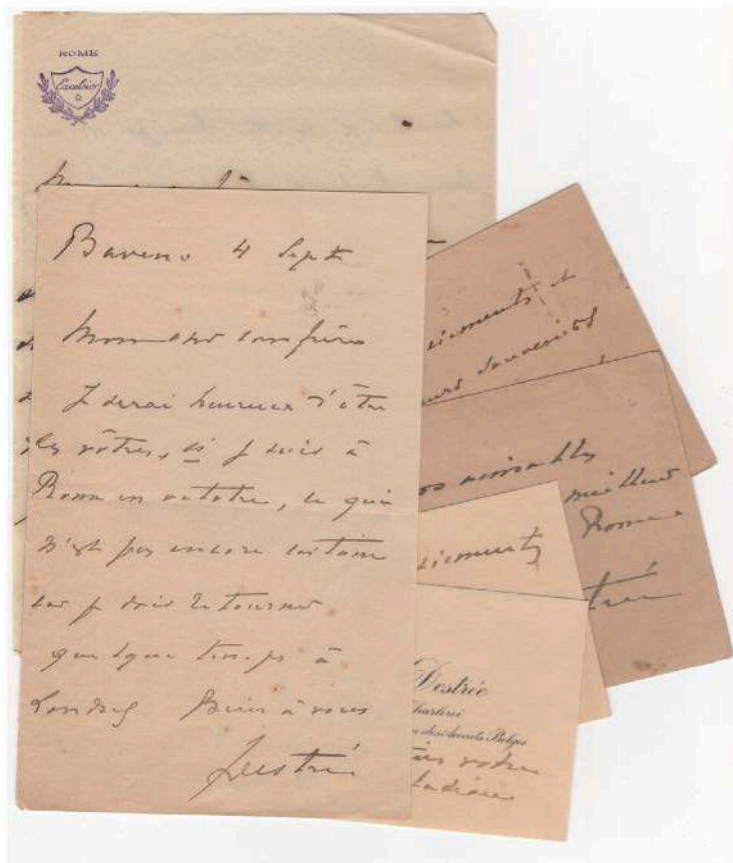 ROME
Excelsior
Baveno 4 Sept
Monsieur confrère
Je serai heureux d'être
des vôtres, si je suis à
Rome en octobre, ce qui
n'est pas encore certain
car je dois retourner
quelque temps à
Londres Bien à vous
Destrée
souvenirs
aimables
meilleurs
Rome
trée
Destrée
des Avocats Belges
votre